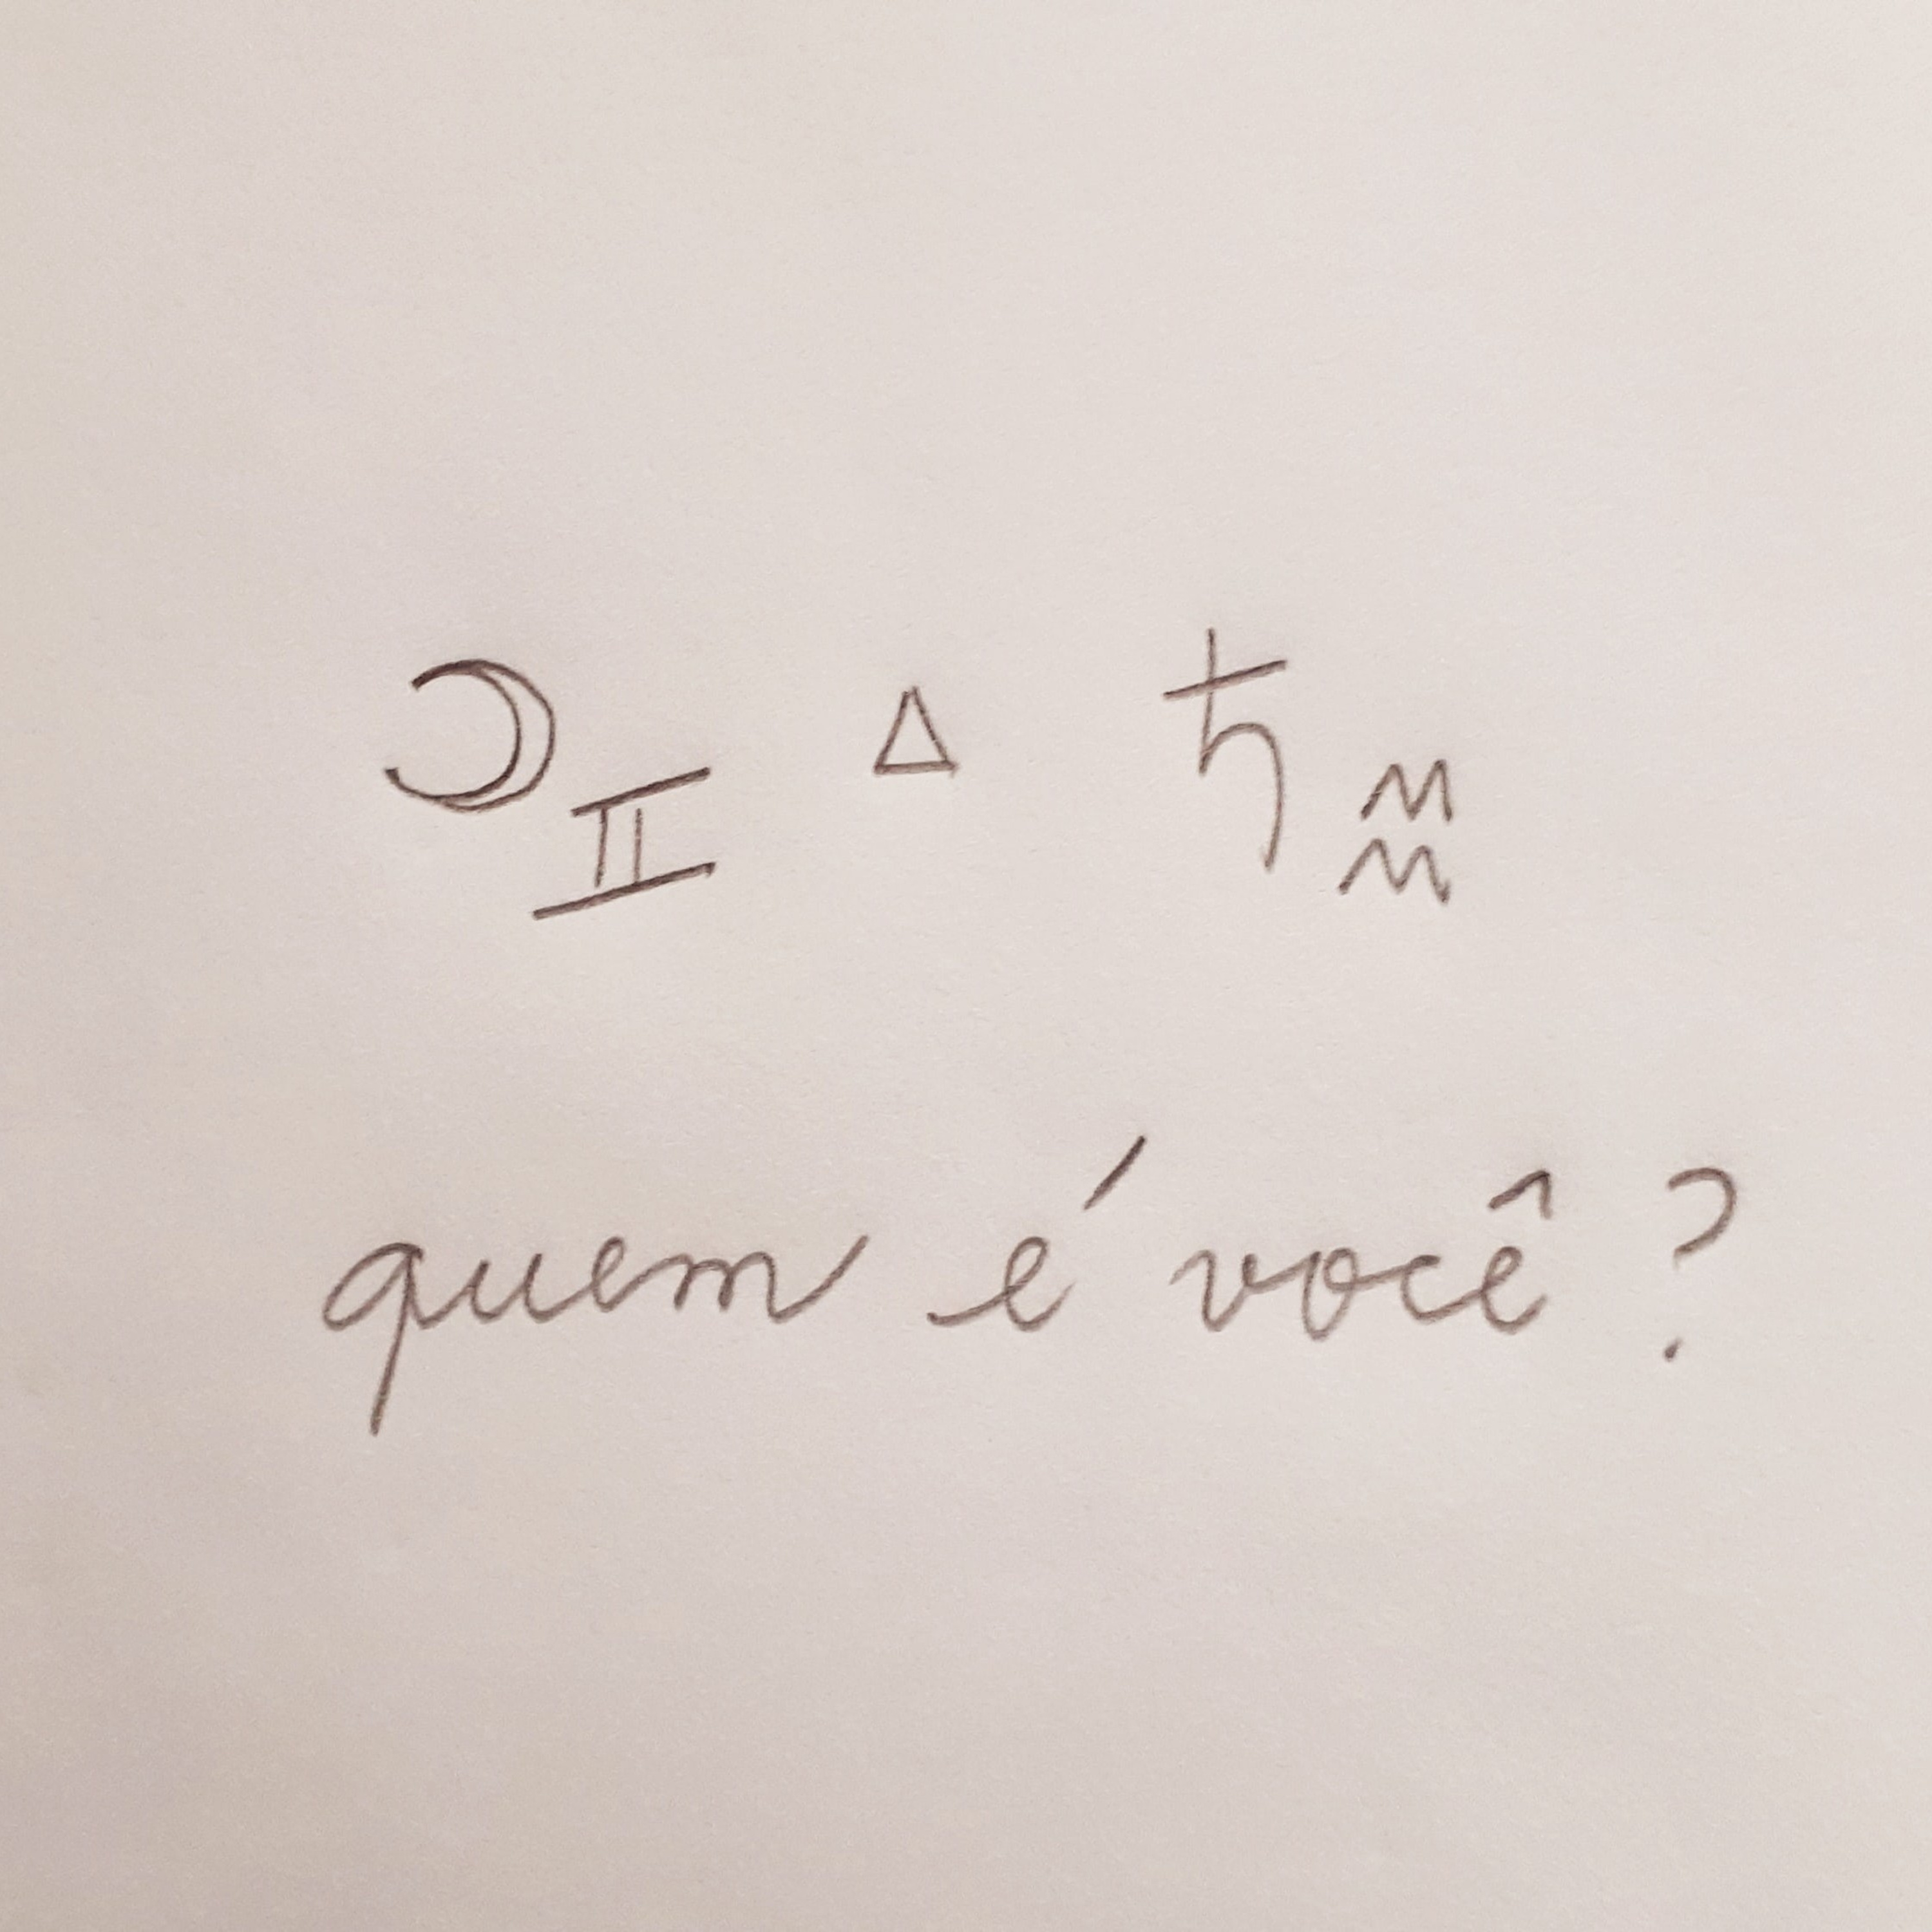 ☽ ♊ △ ♄ ♒
quem é você ?